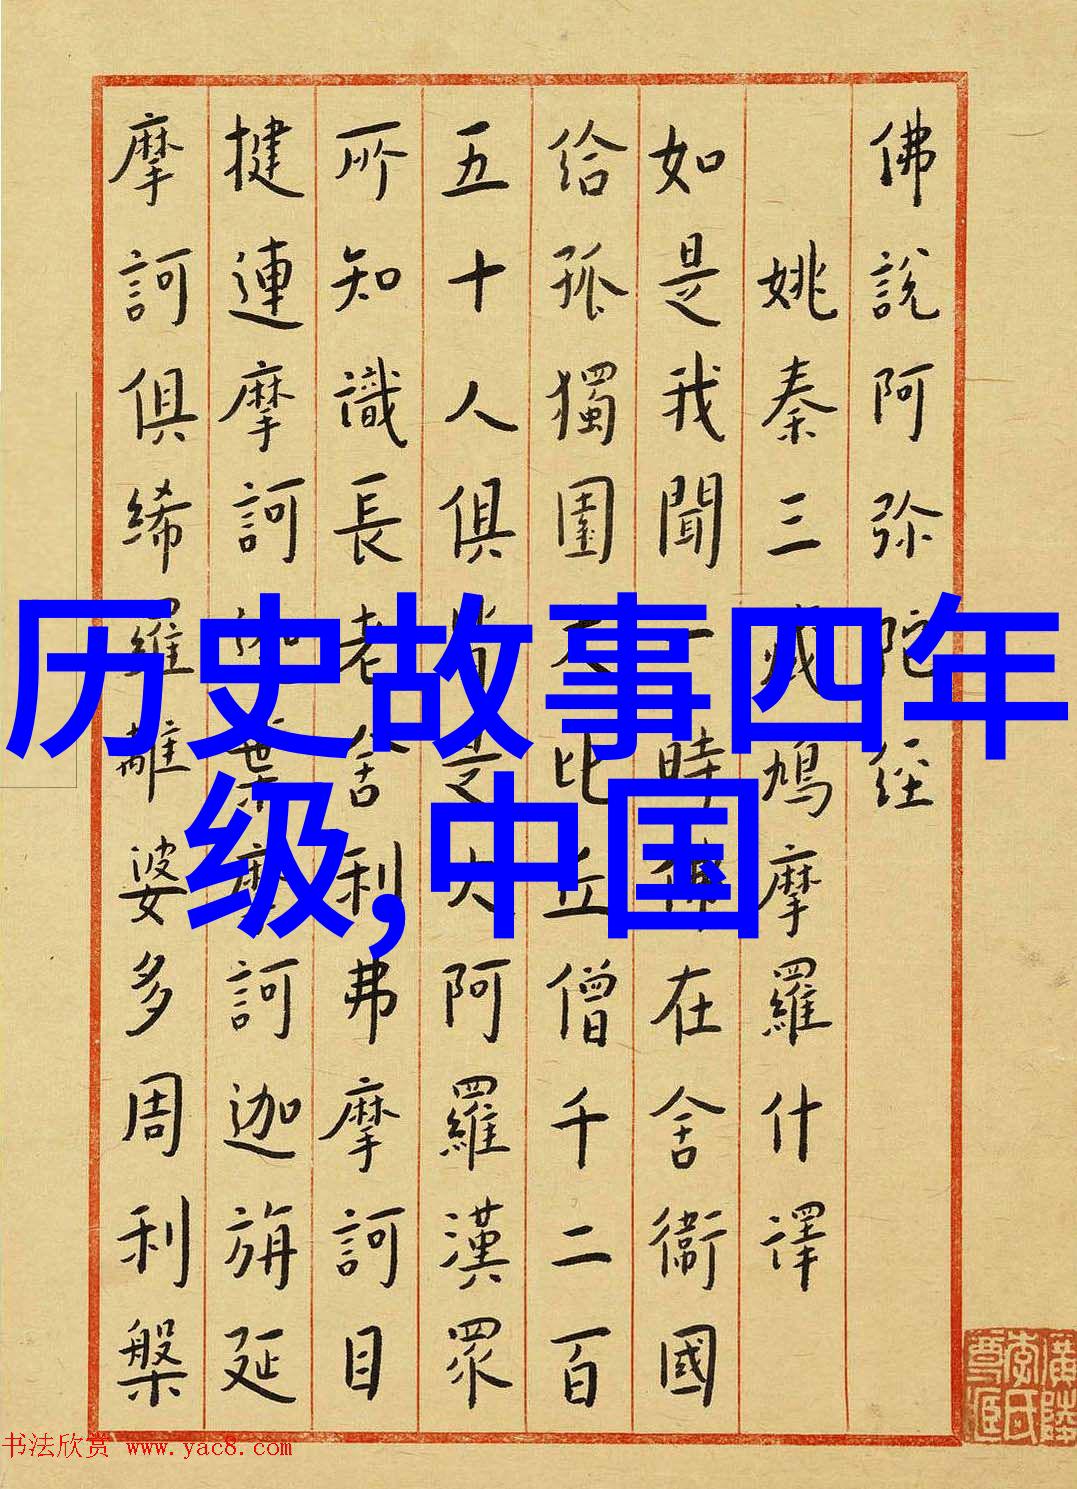 佛說阿弥陀經
姚秦三藏鳩摩羅什譯
如是我聞一時佛在舍衞國
給孤獨園大比丘僧千二百
五十人俱皆是大阿羅漢眾
所知識長老舍利弗摩訶目
揵連摩訶迦葉摩訶迦旃延
摩訶俱絺羅離婆多周利槃
历史故事四年
级,中国
书法欣赏 www.yac8.com